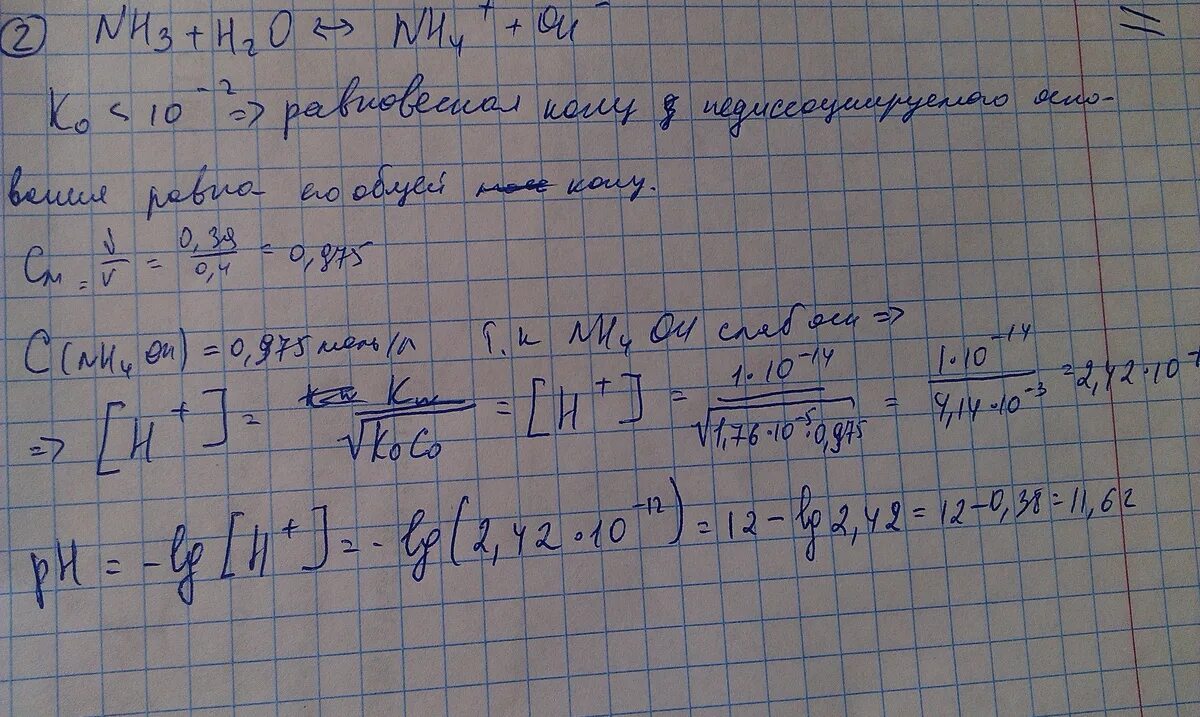 ② NH₃ + H₂O ↔ NH₄⁺ + OH⁻
K₀ < 10⁻² => равновесная конц недиссоциируемого осно-
вания равна его общей конц.
Cм = ν/V = 0,39/0,4 = 0,975
C(NH₄OH) = 0,975 моль/л Т.к NH₄OH слаб осн =>
=> [H⁺] = Kw/√K₀C₀ = [H⁺] = 1·10⁻¹⁴/√1,76·10⁻⁵·0,975 = 1·10⁻¹⁴/4,14·10⁻³ = 2,42·10⁻¹
pH = -lg[H⁺] = -lg(2,42·10⁻¹²) = 12 - lg 2,42 = 12 - 0,38 = 11,62